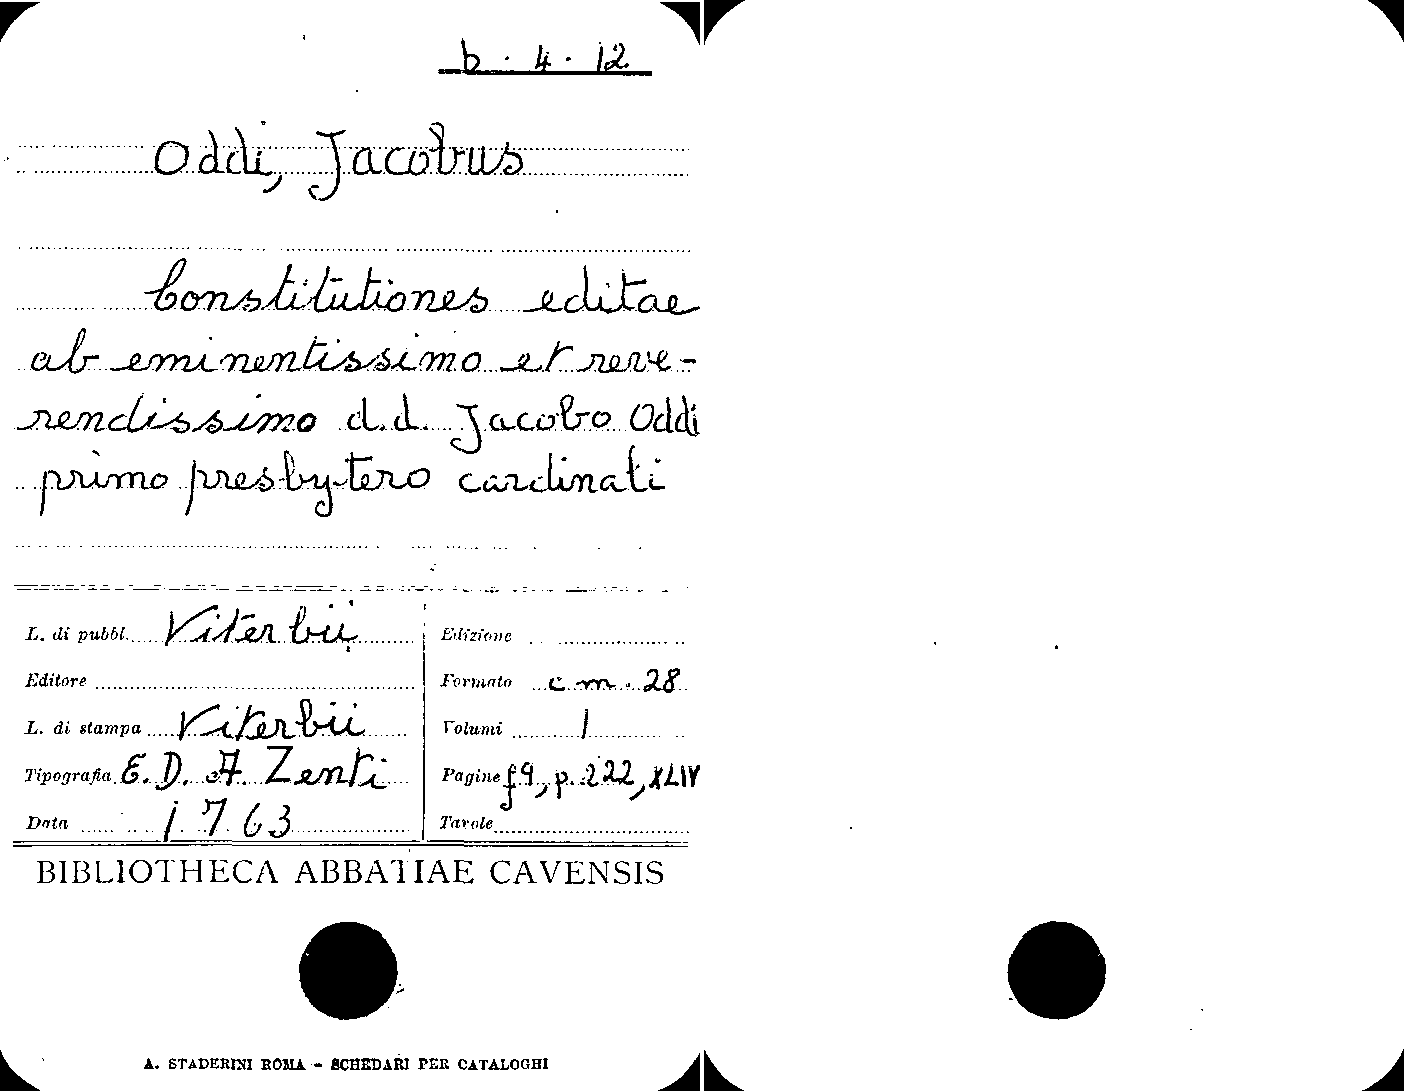 b. 4. 12
Oddi, Jacobus
Constitutiones editae
ab eminentissimo et reve-
rendissimo d.d. Jacobo Oddi
primo presbytero cardinali
L. di pubbl. Viterbii
Edizione
Editore
Formato cm. 28
L. di stampa Viterbii
Volumi 1
Tipografia E. D. A. Zenti
Pagine f9, p. 222, XLIV
Data 1763
Tavole
BIBLIOTHECA ABBATIAE CAVENSIS
A. STADERINI ROMA - SCHEDARI PER CATALOGHI